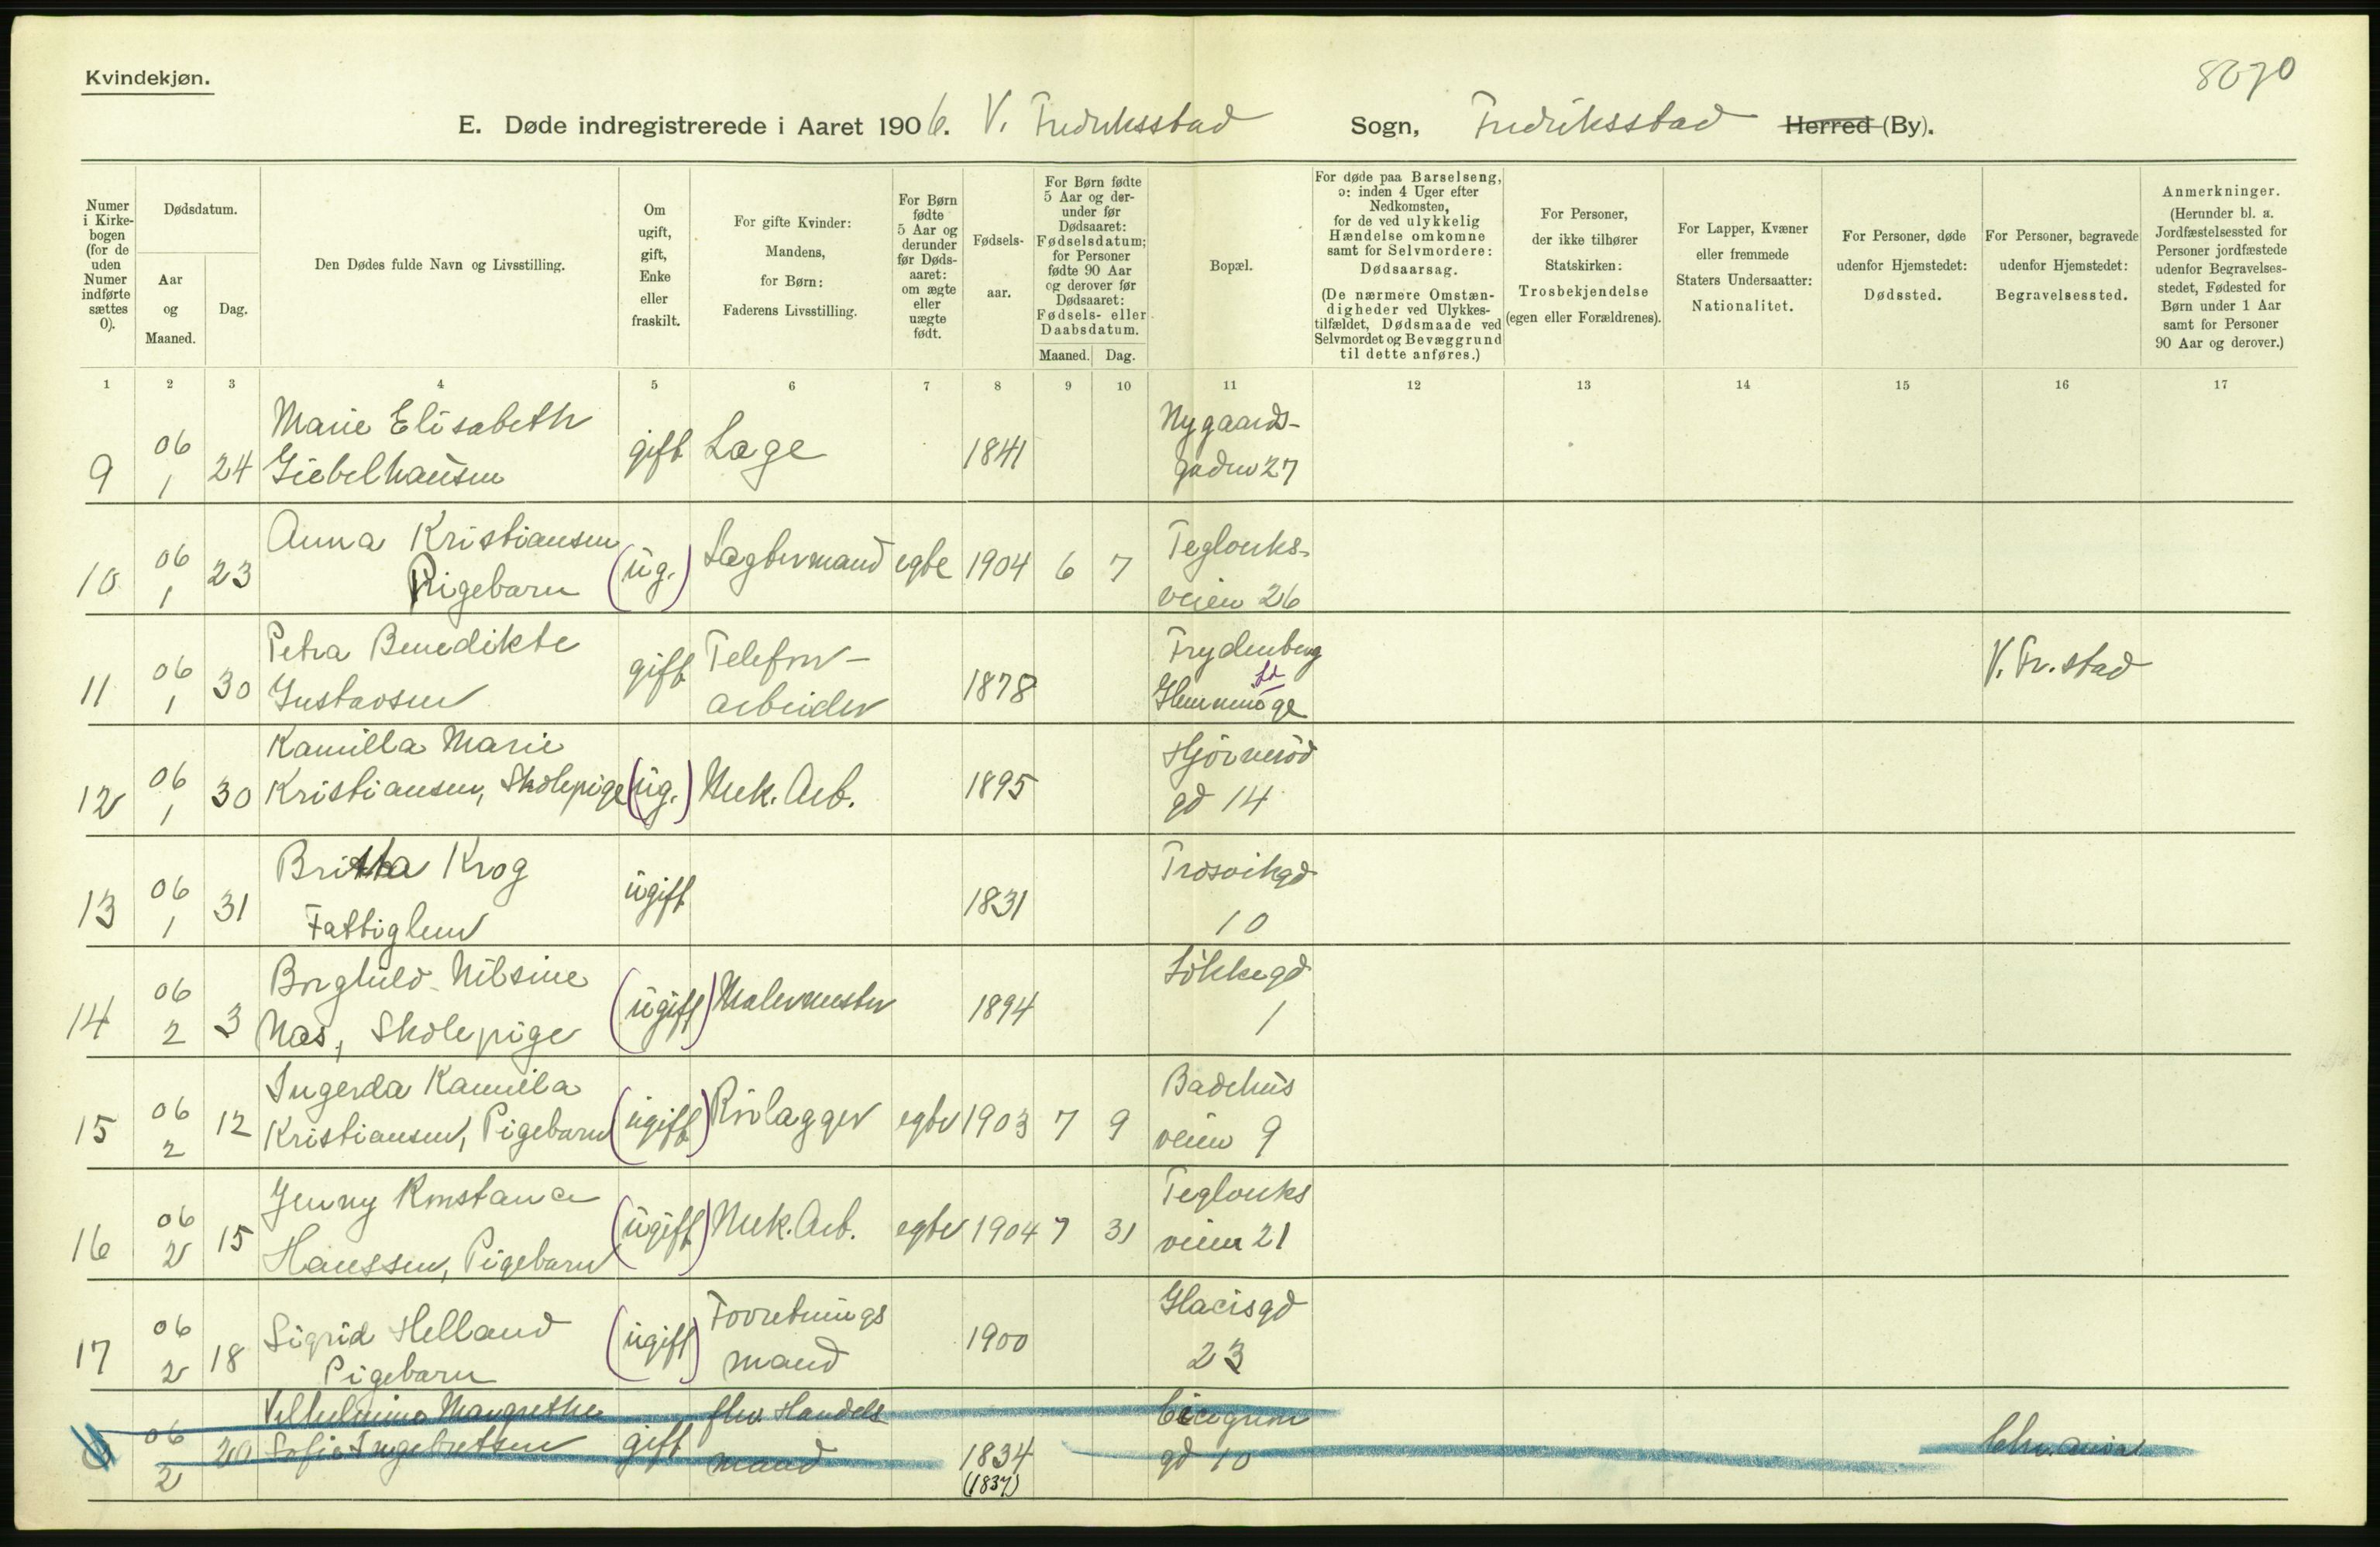 Kvindekjøn.
8070
E. Døde indregistrerede i Aaret 1906. V. Fredriksstad Sogn, Fredriksstad Herred (By).
Numer i Kirkebogen (for de uden Numer indførte sættes 0).
Dødsdatum.
Aar og Maaned.
Dag.
Den Dødes fulde Navn og Livsstilling.
Om ugift, gift, Enke eller fraskilt.
For gifte Kvinder: Mandens, for Børn: Faderens Livsstilling.
For Børn fødte 5 Aar og derunder før Dødsaaret: om ægte eller uægte født.
Fødselsaar.
For Børn fødte 5 Aar og derunder før Dødsaaret: Fødselsdatum; for Personer fødte 90 Aar og derover før Dødsaaret: Fødsels- eller Daabsdatum.
Maaned. Dag.
Bopæl.
For døde paa Barselseng, ɔ: inden 4 Uger efter Nedkomsten, for de ved ulykkelig Hændelse omkomne samt for Selvmordere: Dødsaarsag. (De nærmere Omstændigheder ved Ulykkestilfældet, Dødsmaade ved Selvmordet og Bevæggrund til dette anføres.)
For Personer, der ikke tilhører Statskirken: Trosbekjendelse (egen eller Forældrenes).
For Lapper, Kvæner eller fremmede Staters Undersaatter: Nationalitet.
For Personer, døde udenfor Hjemstedet: Dødssted.
For Personer, begravede udenfor Hjemstedet: Begravelsessted.
Anmerkninger. (Herunder bl. a. Jordfæstelsessted for Personer jordfæstede udenfor Begravelsesstedet, Fødested for Børn under 1 Aar samt for Personer 90 Aar og derover.)
1 2 3 4 5 6 7 8 9 10 11 12 13 14 15 16 17
Marie Elisabeth Nygaards-
9 06 1 24 Giebelhausen gift Læge 1841 gaden 27
Anna Kristiansen Teglverks-
10 06 1 23 Pigebarn (ug.) Lægtermand egte 1904 6 7 veien 26
Petra Benedikte Telefon- Frydenberg
11 06 1 30 Gustavsen gift arbeider 1878 Glemminge V. Fr.stad
Kamilla Marie
12 06 1 30 Kristiansen, Skolepige (ug.) Mek. Arb. 1895 gd 14
Britha Krog Trosvikgd
13 06 1 31 Fattiglem ugift 1831 10
Borghild Nilsine Løkkegd
14 06 2 3 Næs, Skolepige (ugift) Malermester 1894 1
Ingerda Kamilla Badehus
15 06 2 12 Kristiansen, Pigebarn (ugift) egte 1903 7 9 veien 9
Jenny Konstance Teglverks
16 06 2 15 Hanssen, Pigebarn (ugift) Mek. Arb. egte 1904 7 31 veien 21
Sigrid Helland Forretnings Glacisgd
17 06 2 18 Pigebarn (ugift) mand 1900 23
Vilhelmine Margrethe fhv. Handels Cicignon
0 06 2 20 Sofie Ingebretsen gift mand 1834 gd 10 Chr.ania
(1837)